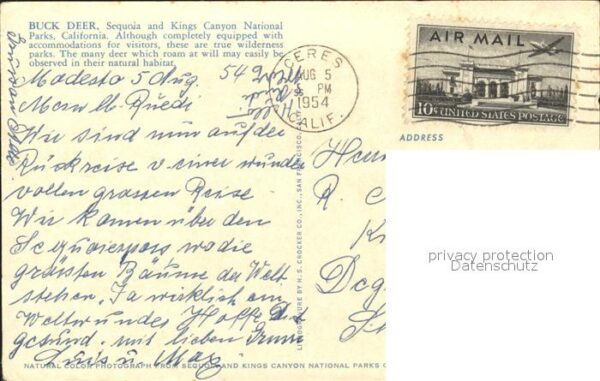 BUCK DEER, Sequoia and Kings Canyon National
Parks, California. Although completely equipped with
accommodations for visitors, these are true wilderness
parks. The many deer which roam at will may easily be
observed in their natural habitat.
Modesto 5 Aug. 54
Ruedi
Wir sind nun auf der
Rückreise v. einer wunder
vollen grossen Reise
Wir kamen über den
wo die
grössten Bäume der Welt
stehen. Ja wirklich ein
Weltwunder Hoffe Dich
gesund. mit lieben Grüssen
u. Max
CERES
AUG 5
PM
1954
CALIF.
AIR MAIL
10¢ UNITED STATES POSTAGE
ADDRESS
R.
privacy protection
Datenschutz
LITHOGRAPHED BY H. S. CROCKER CO., INC., SAN FRANCISCO,
NATURAL COLOR PHOTOGRAPH FROM SEQUOIA AND KINGS CANYON NATIONAL PARKS